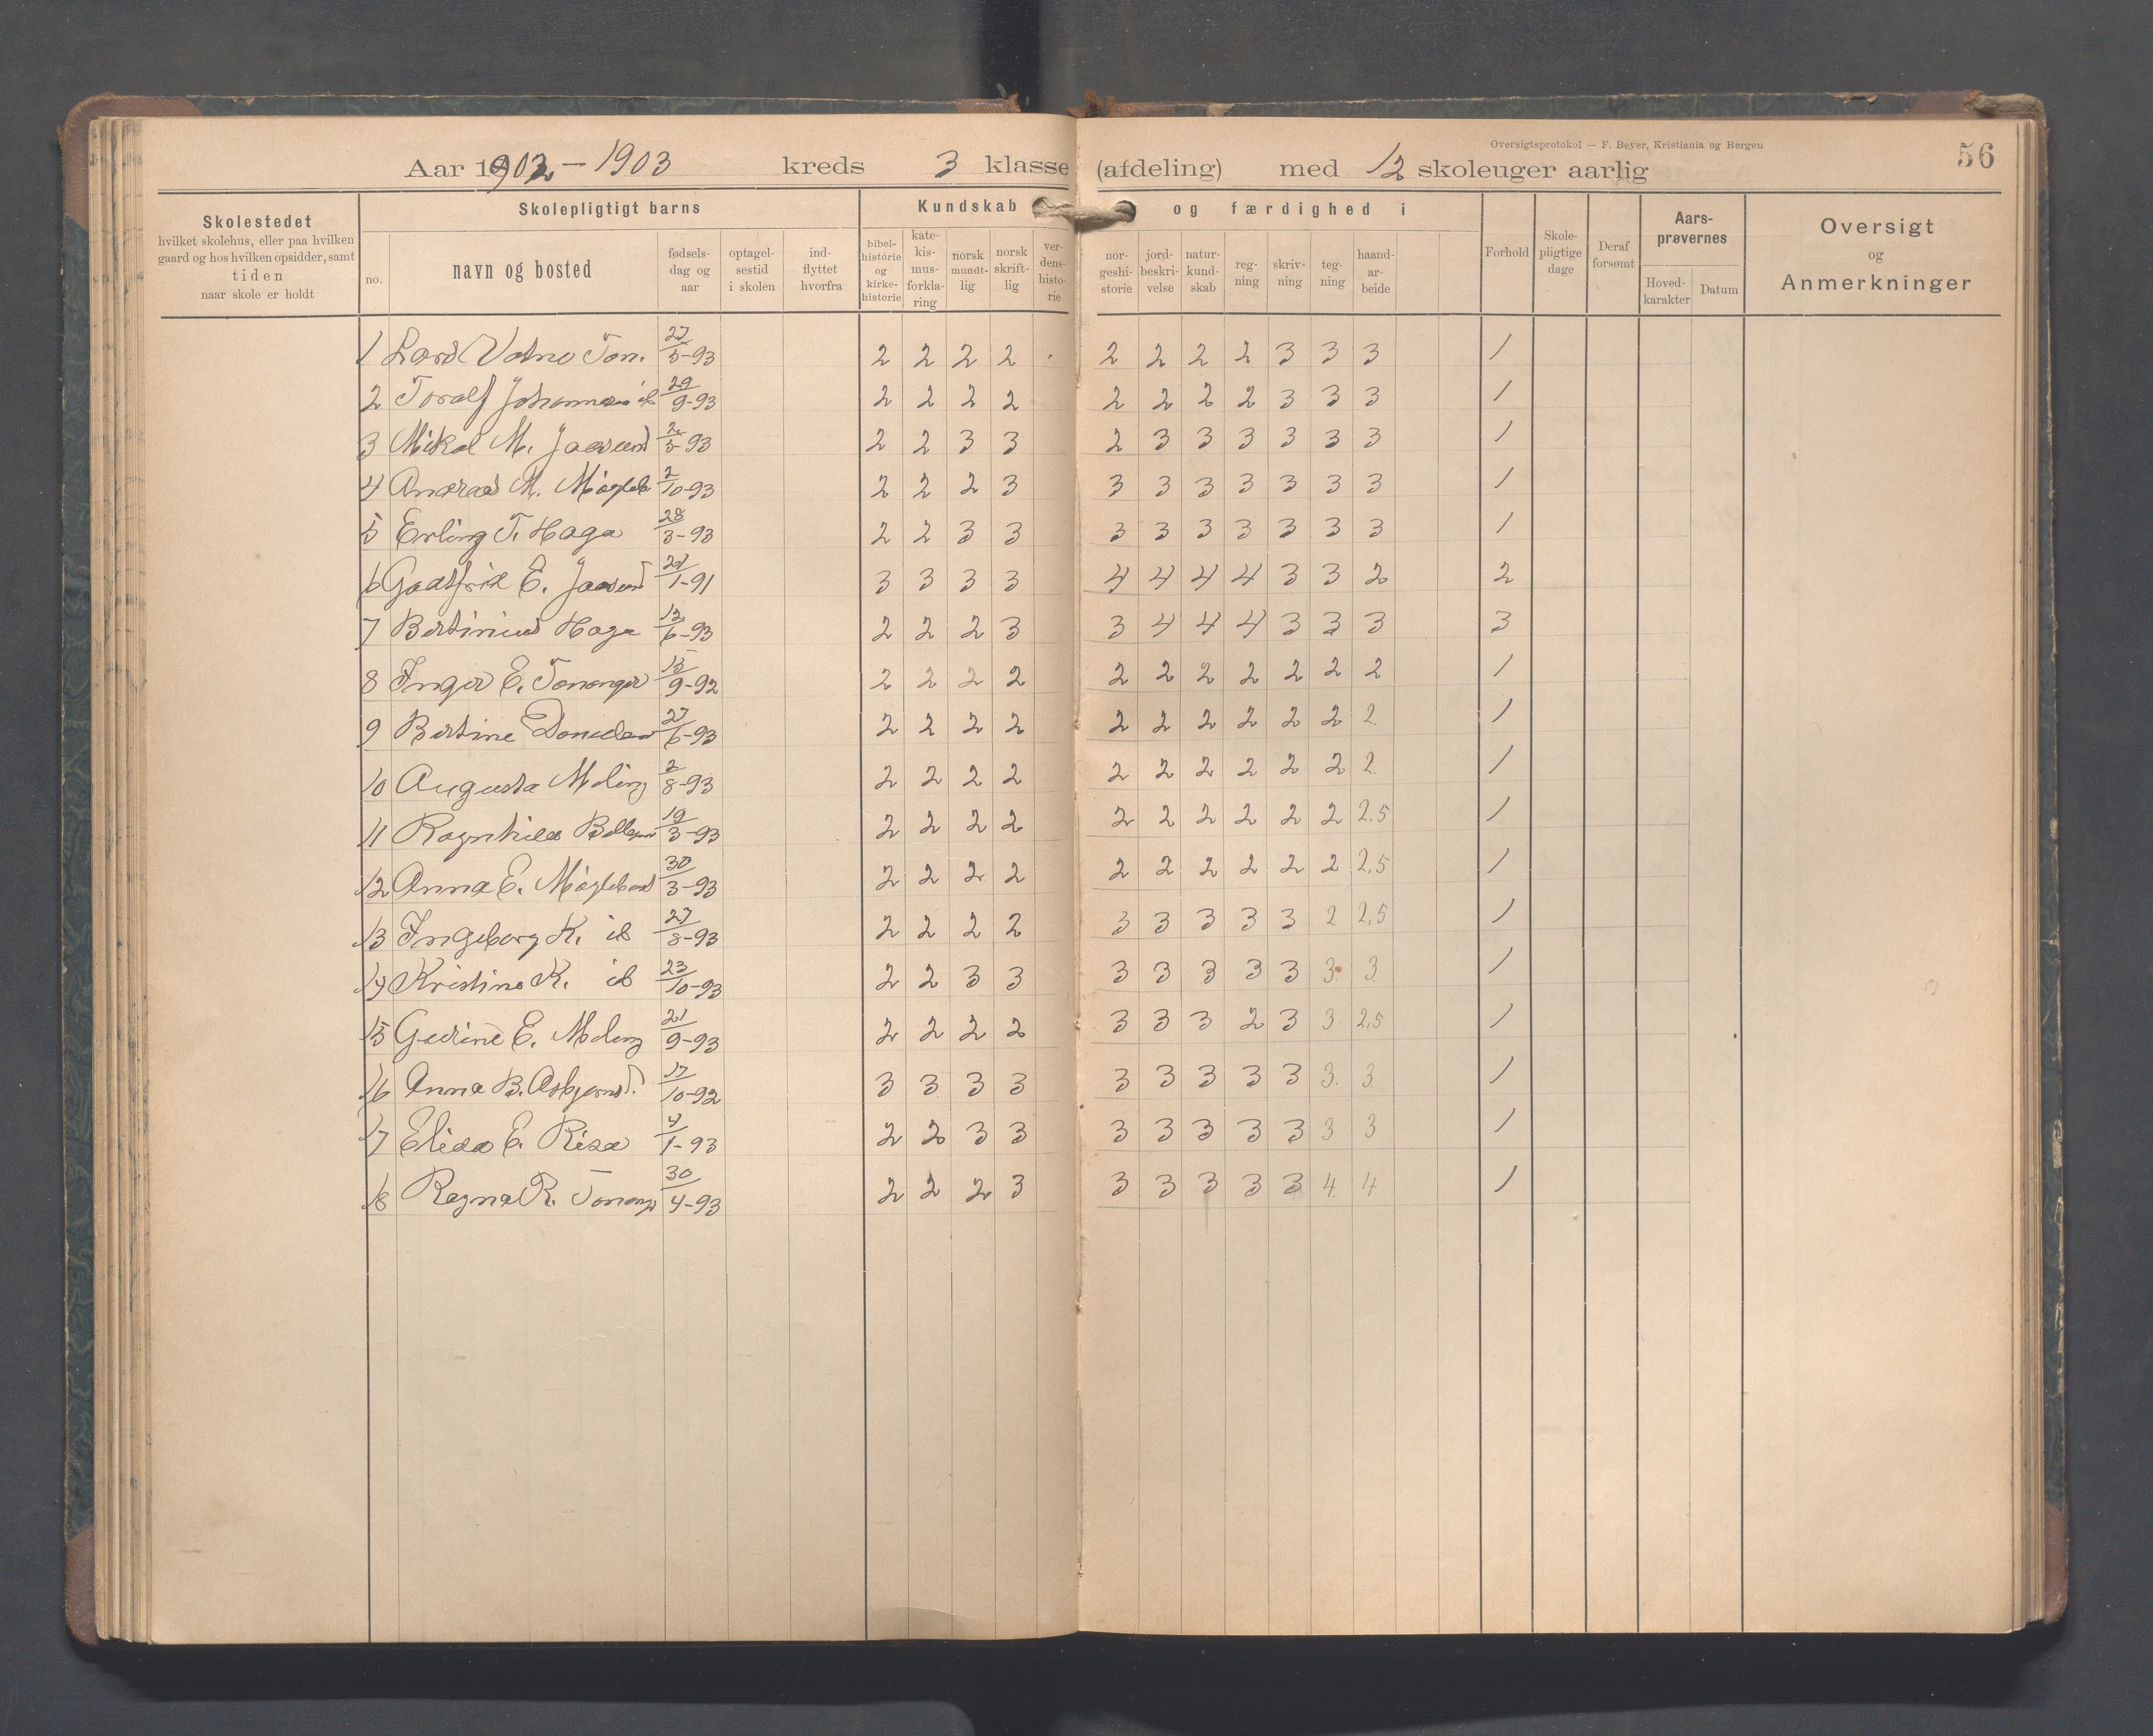 Oversigtsprotokol — F. Beyer, Kristiania og Bergen
56
Aar 1902 – 1903 kreds 3 klasse (afdeling) med 12 skoleuger aarlig
Skolestedet
hvilket skolehus, eller paa hvilken
gaard og hos hvilken opsidder, samt
tiden
naar skole er holdt
Skolepligtigt barns
no.
navn og bosted
fødsels-
dag og
aar
optagel-
sestid
i skolen
ind-
flyttet
hvorfra
Kundskab og færdighed i
bibel-
historie
og
kirke-
historie
kate-
kis-
mus-
forkla-
ring
norsk
mundt-
lig
norsk
skrift-
lig
ver-
dens-
histo-
rie
nor-
geshi-
storie
jord-
beskri-
velse
natur-
kund-
skab
reg-
ning
skriv-
ning
teg-
ning
haand-
ar-
beide
Forhold
Skole-
pligtige
dage
Deraf
forsømt
Aars-
prøvernes
Hoved-
karakter
Datum
Oversigt
og
Anmerkninger
1 Lars Ton. 27/5-93 2 2 2 2 2 2 2 2 3 3 3 1
2 Toralf Johannesen 29/9-93 2 2 2 2 2 2 2 2 3 3 3 1
3 Mikal M. Jaasund 2/5-93 2 2 3 3 2 3 3 3 3 3 3 1
4 Andreas M. 2/10-93 2 2 2 3 3 3 3 3 3 3 3 1
5 Erling T. Haga 28/3-93 2 2 3 3 3 3 3 3 3 3 3 1
6 Gaatfrid E. Jaasund /1-91 3 3 3 3 4 4 4 4 3 3 2 2
7 Bertinius Haga 12/6-93 2 2 2 3 3 4 4 4 3 3 3 3
8 Inger E. Tananger 15/9-92 2 2 2 2 2 2 2 2 2 2 2 1
9 Bertine 27/6-93 2 2 2 2 2 2 2 2 2 2 2 1
10 Augusta Meling 2/8-93 2 2 2 2 2 2 2 2 2 2 2 1
11 Ragnhild 19/3-93 2 2 2 2 2 2 2 2 2 2 2.5 1
12 Anna E. 30/3-93 2 2 2 2 2 2 2 2 2 2 2,5 1
13 Ingeborg K. ib 27/8-93 2 2 2 2 3 3 3 3 3 2 2,5 1
14 Kristine K. ib 23/10-93 2 2 3 3 3 3 3 3 3 3 3 1
15 E. Meling 21/9-93 2 2 2 2 3 3 3 2 3 3 2,5 1
16 Anna B. Asbjørns. 17/10-92 3 3 3 3 3 3 3 3 3 3. 3 1
17 Elisa E. Risa 4/1-93 2 2 3 3 3 3 3 3 3 3 3 1
18 Ragna R. Tanang. 30/4-93 2 2 2 3 3 3 3 3 3 4 4 1